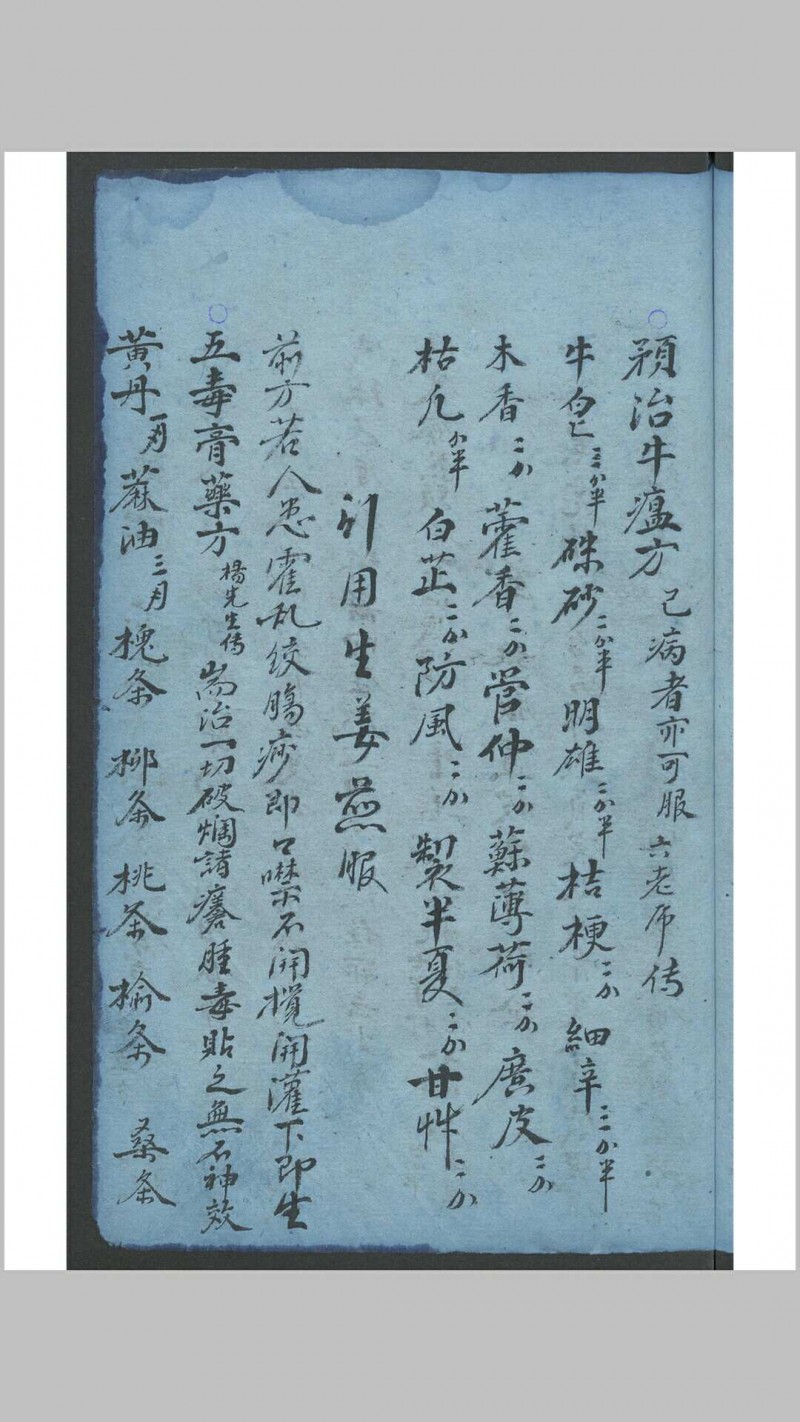 預治牛瘟方 已病者亦可服 六老师传
牛皂二分半 硃砂二分半 明雄二分半 桔梗二分 細辛三分半
木香二分 藿香二分 管仲二分 蘇薄荷二分 廣皮二分
枯凡分半 白芷二分 防風二分 製半夏二分 甘艸二分
引用生姜煎服
前方若人患霍乱絞腸痧即口噤不開撬開灌下即生
五毒膏藥方 楊先生传 耑治一切破爛諸瘡腫毒貼之無不神效
黃丹 蔴油 槐条 柳条 桃条 榆条 桑条